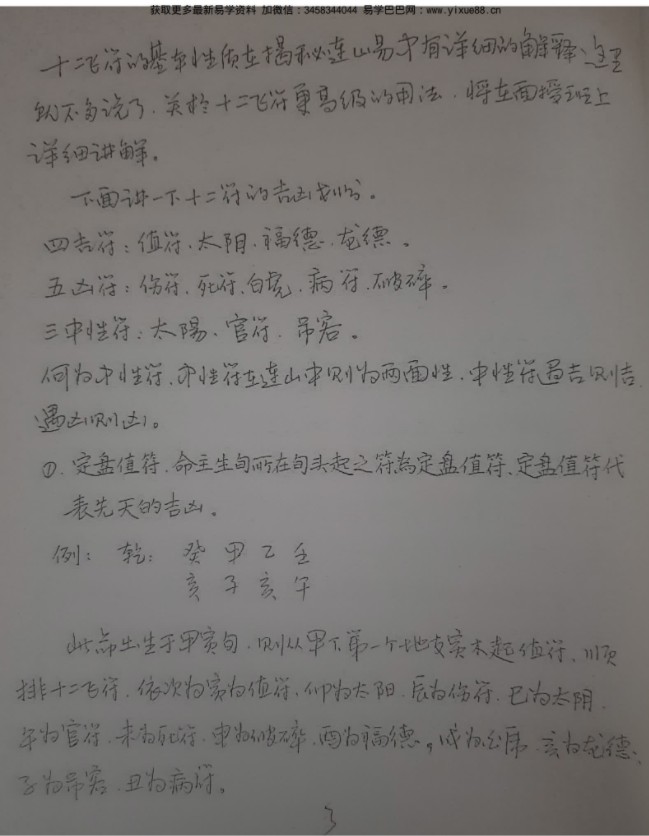 获取更多最新易学资料 加微信：3458344044 易学巴巴网：www.yixue88.cn
十二飞符的基本性质在揭秘连山易中有详细的解释、这里
就不多说了．关於十二飞符更高级的用法．将在面授班上
详细讲解。
下面讲一下十二符的吉凶划分。
四吉符：值符．太阳．福德．龙德。
五凶符：伤符．死符．白虎．病符．破碎。
三中性符：太陽．官符．吊客。
何为中性符．中性符在连山中则为两面性．中性符遇吉则吉
遇凶则凶。
①．定盘值符．命主生旬所在旬头起之符為定盘值符、定盘值符代
表先天的吉凶。
例：乾：癸甲乙壬
亥子亥午
此命出生于甲寅旬．则从甲下第一个地支寅木起值符、顺
排十二飞符．依次为寅为值符．卯为太阳．辰为伤符．巳为太阴．
午为官符．未为死符．申为破碎．酉为福德。戌为白虎．亥为龙德．
子为吊客．丑为病符。
3